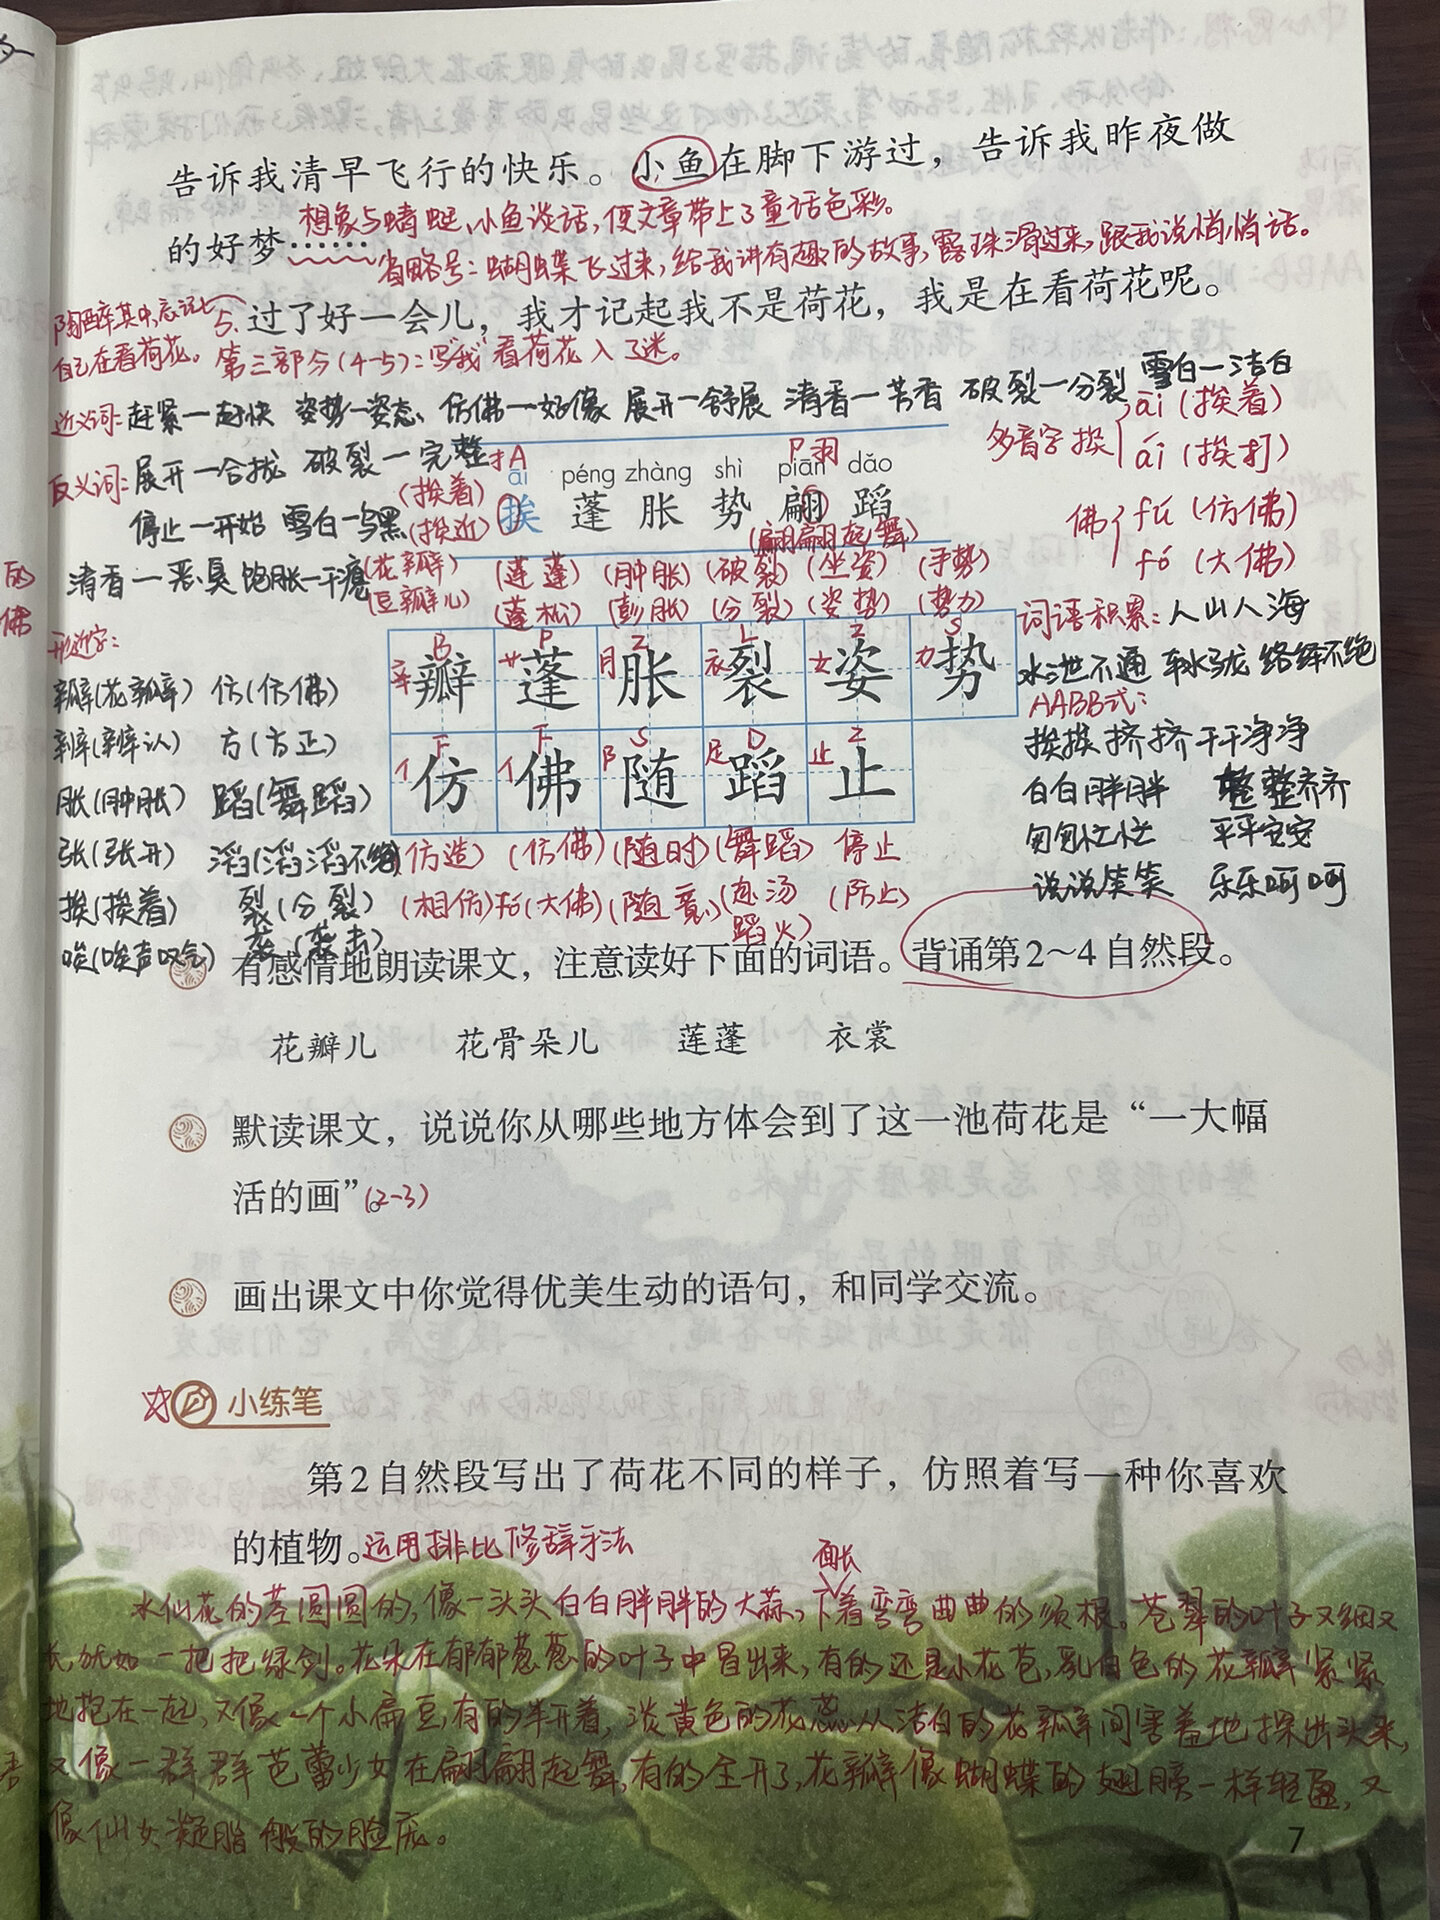 告诉我清早飞行的快乐。小鱼在脚下游过，告诉我昨夜做
想象与蜻蜓、小鱼谈话，使文章带上了童话色彩。
的好梦……
省略号：蝴蝶飞过来，给我讲有趣的故事，露珠滑过来，跟我说悄悄话。
陶醉其中，忘记
自己在看荷花。
5.过了好一会儿，我才记起我不是荷花，我是在看荷花呢。
第三部分(4-5)：写“我”看荷花入了迷。
近义词：赶紧—赶快 姿势—姿态 仿佛—好像 展开—舒展 清香—芳香 破裂—分裂 雪白—洁白
反义词：展开—合拢 破裂—完整
停止—开始 雪白—乌黑
清香—恶臭 饱胀—干瘪
多音字 挨 āi (挨着)
ái (挨打)
佛 fú (仿佛)
fó (大佛)
扌A P羽
āi péng zhàng shì piān dǎo
(挨着)
(挨近)
挨 蓬 胀 势 翩 蹈
(翩翩起舞)
(花瓣) (莲蓬) (肿胀) (破裂) (坐姿) (手势)
(豆瓣儿) (蓬松) (膨胀) (分裂) (姿势) (势力)
B P Z L Z S
辛 艹 月 衣 女 力
瓣 蓬 胀 裂 姿 势
F F S D Z
亻 亻 阝 足 止
仿 佛 随 蹈 止
(仿造) (仿佛) (随时) (舞蹈) 停止
(相仿) fó (大佛) (随意) (赴汤蹈火) (防止)
形近字：
瓣(花瓣) 仿(仿佛)
辨(辨认) 方(方正)
胀(肿胀) 蹈(舞蹈)
张(张开) 滔(滔滔不绝)
挨(挨着) 裂(分裂)
唉(唉声叹气) 袭(袭击)
词语积累：人山人海
水泄不通 车水马龙 络绎不绝
AABB式：
挨挨挤挤 干干净净
白白胖胖 整整齐齐
匆匆忙忙 平平安安
说说笑笑 乐乐呵呵
有感情地朗读课文，注意读好下面的词语。背诵第2～4自然段。
花瓣儿 花骨朵儿 莲蓬 衣裳
默读课文，说说你从哪些地方体会到了这一池荷花是“一大幅
活的画”。(2-3)
画出课文中你觉得优美生动的语句，和同学交流。
小练笔
第2自然段写出了荷花不同的样子，仿照着写一种你喜欢
的植物。运用排比修辞手法
面长
水仙花的茎圆圆的，像一头头白白胖胖的大蒜，下着弯弯曲曲的须根。苍翠的叶子又细又
长，犹如一把把绿剑。花朵在郁郁葱葱的叶子中冒出来，有的还是小花苞，乳白色的花瓣紧紧
地抱在一起，又像一个小扁豆，有的半开着，淡黄色的花蕊从洁白的花瓣间害羞地探出头来，
又像一群群芭蕾少女在翩翩起舞，有的全开了，花瓣像蝴蝶的翅膀一样轻盈，又
像仙女凝脂般的脸庞。
7